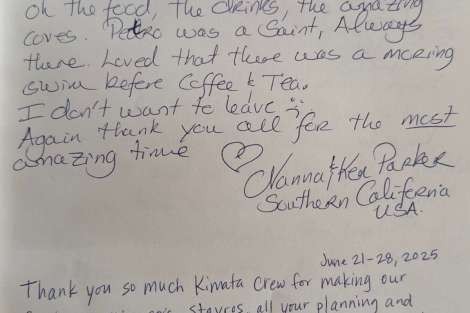 oh the food, the drinks, the amazing
coves. Petro was a Saint, Always
there. Loved that there was a morning
swim before Coffee & Tea.
I don't want to leave
Again thank you all for the most
amazing time ♡
Nanna & Ken Parker
Southern California
USA.
June 21-28, 2025
Thank you so much Kinnata Crew for making our
Stavros, all your planning and